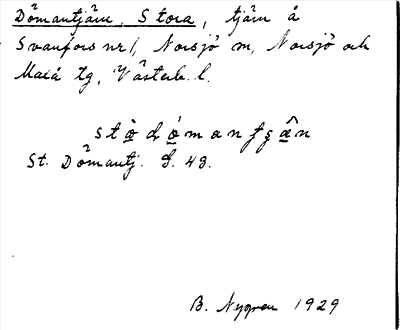 Dömantjärn, Stora, tjärn å
Svanfors nr 1, Norsjö sn, Norsjö och
Malå tg, Västerb. l.
St. Dömantj. S. 48.
B. Nygren 1929